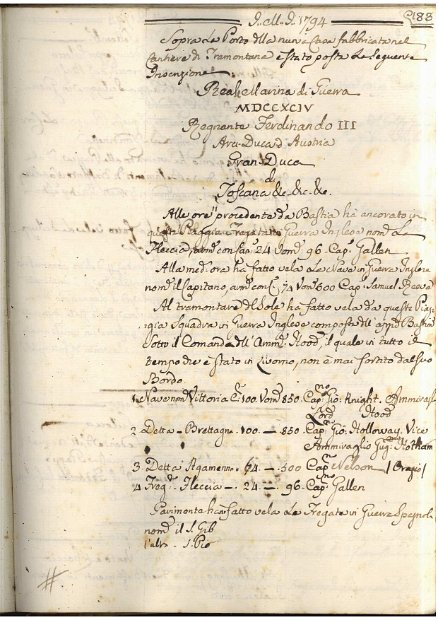 A. M. D. 1794
183
Sopra la Porta della nuova Casa fabbricata nel
Cantiere di Tramontana è stato posta la seguente
Inscrizione
Real Marina di Guerra
MDCCXCIV
Regnante Ferdinando III
Arci Duca d'Austria
Gran Duca
di
Toscana &c. &c. &c.
Alle ore procedente da Bastia ha ancorato in
questa Piaggia Fregata da Guerra Inglese nom.
Fleccia Can. 24 Uom. 96 Cap. Gallen
Alla med. ora ha fatto vela la Nave in Guerra Inglese
nom. il Capitano C. 74 Uom. 600 Cap. Samuel Reeve
Al tramontare del Sole ha fatto vela da questa Piag-
gia Squadra in Guerra Inglese composta Bastia
sotto il Comando dell' Amm. Hood il quale in tutto il
tempo che è stato in Livorno, non è mai sortito dal suo
Bordo
1 Nave nom. Vittoria C. 100 Uom. 850 Cap. Gio: Knight. Ammiraglio
Lord Hood
2 Detta - Brettagn. 100 — 850 Cap. Gio: Holloway. Vice
Ammiraglio Gug. Hotham
3 Detta Agamenn. 64 — 500 Cap. Nelson / Orazio /
4 Freg. Fleccia — 24 — 96 Cap. Gallen
ha fatto vela le Fregate in Guerra Spagnole
nom. il S. Gib
l'altra S. Pio